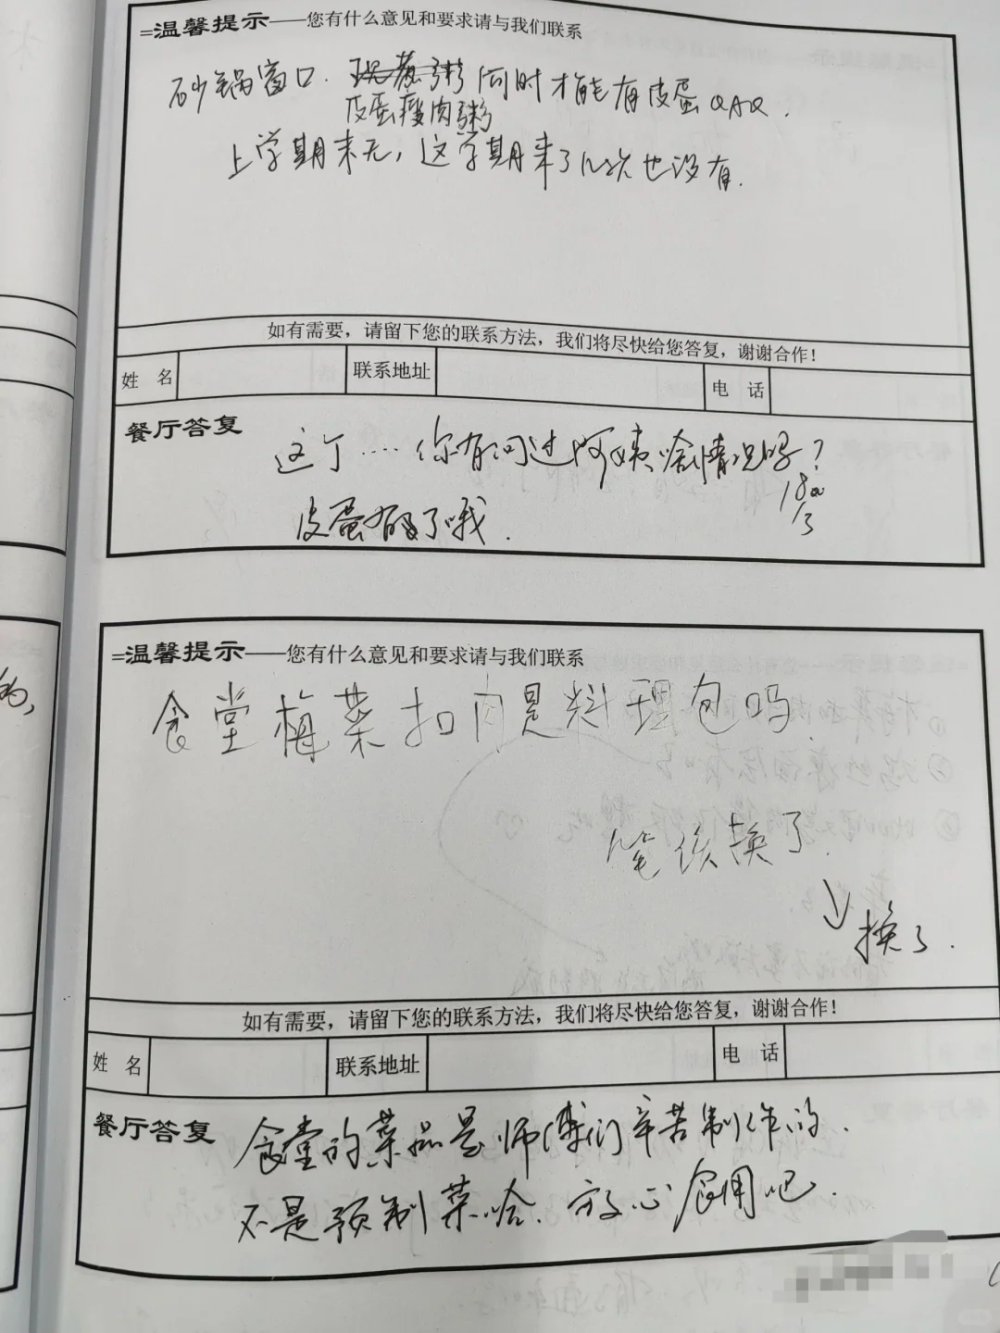 =温馨提示——您有什么意见和要求请与我们联系
砂锅窗口. 何时才能有皮蛋QAQ.
皮蛋瘦肉粥
上学期末无,这学期来了几次也没有.
如有需要,请留下您的联系方法,我们将尽快给您答复,谢谢合作!
姓 名 联系地址 电 话
餐厅答复
这个....你有问过阿姨啥情况吗?
皮蛋有了哦.
=温馨提示——您有什么意见和要求请与我们联系
食堂梅菜扣肉是料理包吗.
笔该换了.
换了.
如有需要,请留下您的联系方法,我们将尽快给您答复,谢谢合作!
姓 名 联系地址 电 话
餐厅答复
食堂的菜品是师傅们辛苦制作的.
不是预制菜哈.放心食用吧.